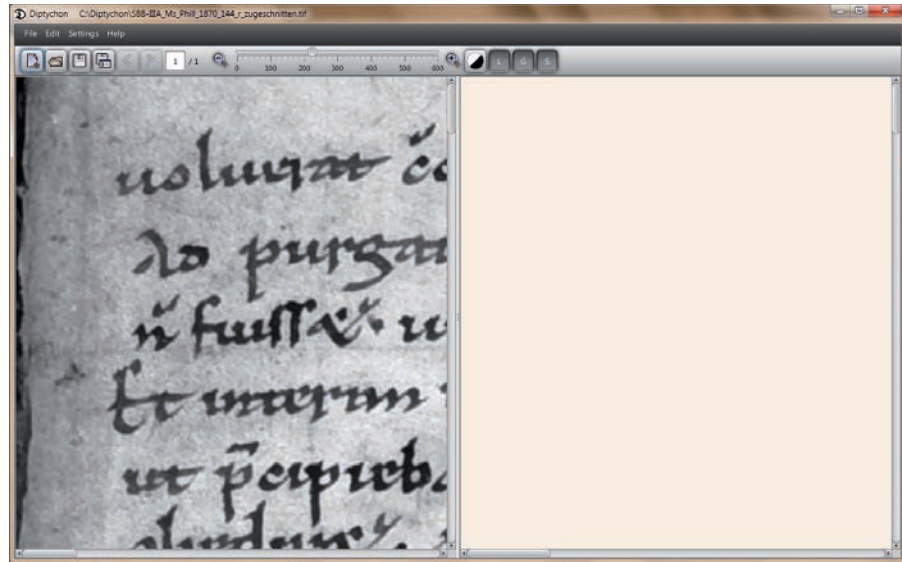 Diptychon C:\Diptychon\SBB-IIIA_Ms_Phill_1870_144_r_zugeschnitten.tif
File Edit Settings Help
1 / 1 0 100 200 300 400 500 600 L G S
uoluerat c̃o
Ad purgat
ñ fuiss& u
Et interim
ut p̄cipieb